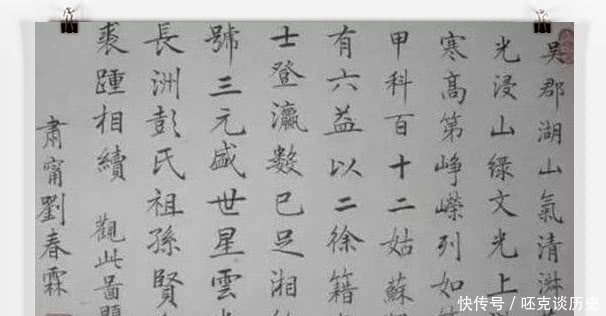 吳郡湖山氣清
光浸山緑文光上
寒高第崢嶸列如
甲科百十二姑蘇
有六益以二徐籍
士登瀛數已足湘
號三元盛世星雲
長洲彭氏祖孫賢
裘踵相續 觀此啚
肅甯劉春霖
快传号／呸克谈历史